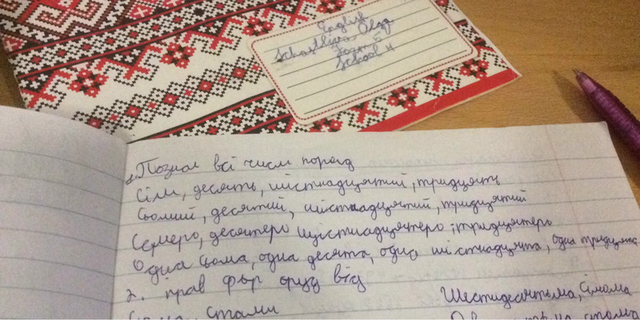 English
Olga
Form 5
School 4
Познач всі числ поряд
Сім, десять, шістнадцятий, тридцять
Сьомий, десятий, шістнадцятий, тридцятий
Семеро, десятеро шістнадцятеро, тридцятеро
Одна сьома, одна десята, одна шістнадцята, одна тридцята
2. прав фор оруд від
стами
Шестидесятьма, сімома